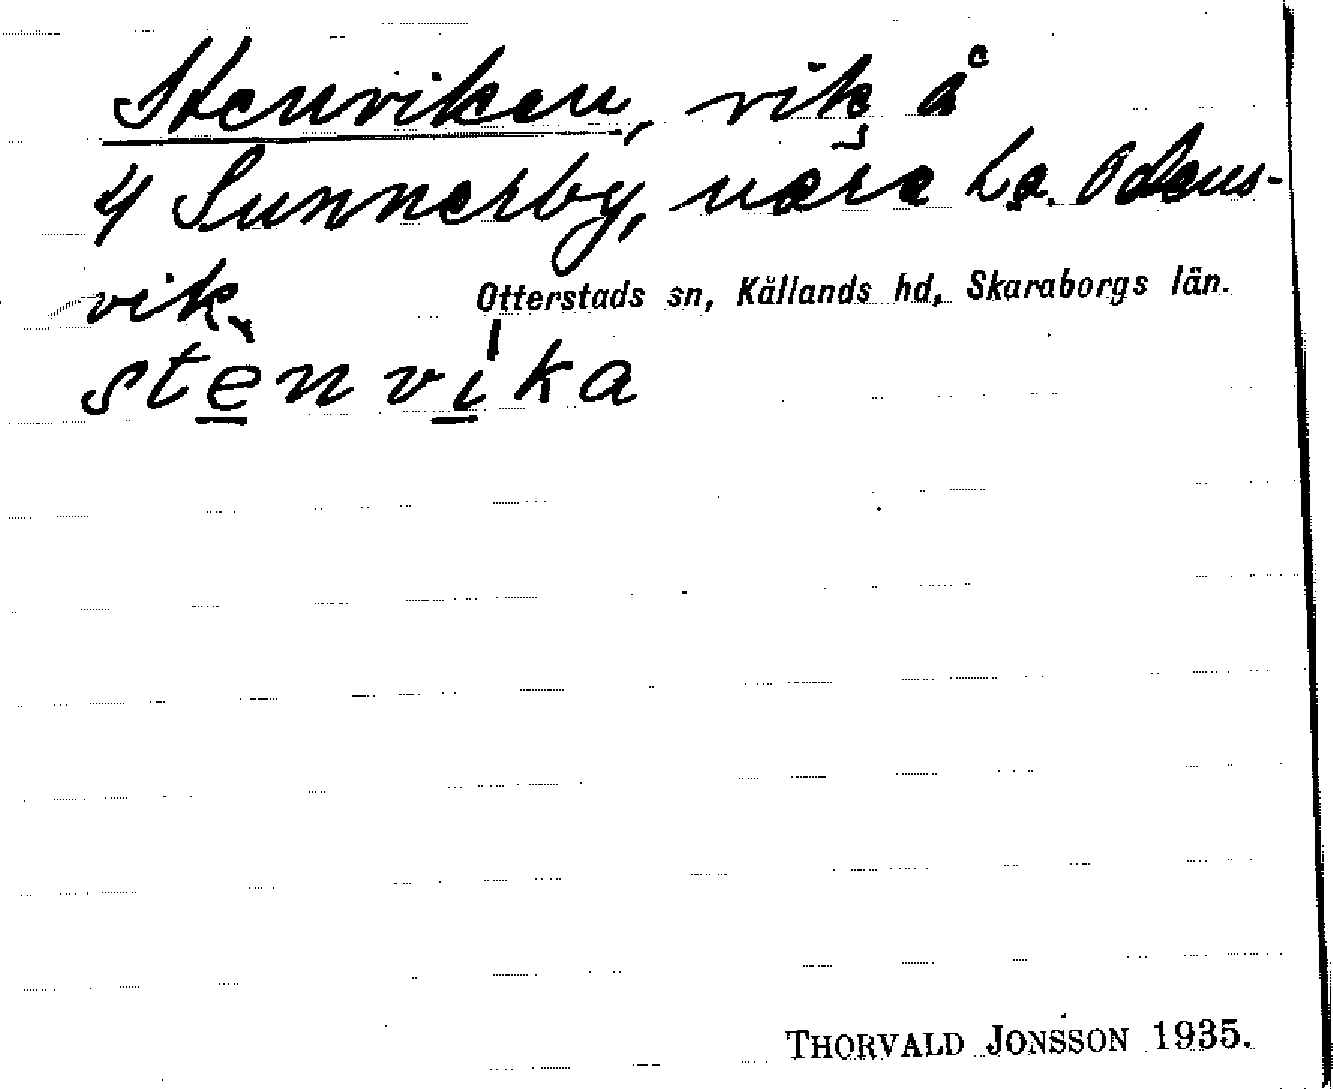 Stenviken, vik å
4 Sunnerby, nära La. Odens-
vik.
Otterstads sn, Källands hd, Skaraborgs län.
stènvíka
THORVALD JONSSON 1935.